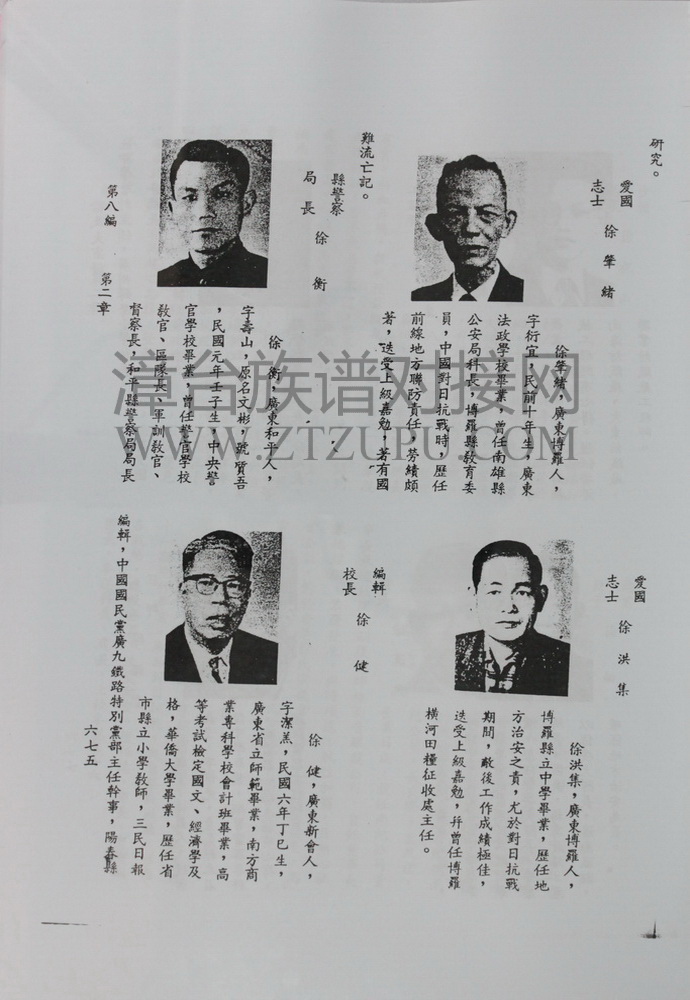 研究。
愛國
志士 徐肇緒
徐肇緒，廣東博羅人，
字衍宜，民前十年生，廣東
法政學校畢業，曾任南雄縣
公安局科長，博羅縣教育委
員，中國對日抗戰時，歷任
前線地方聯防責任，勞績頗
著，迭受上級嘉勉，著有國
難流亡記。
縣警察
局長 徐衡
徐衡，廣東和平人，
字壽山，原名文彬，號質吾
，民國元年壬子生，中央警
官學校畢業，曾任警官學校
教官、區隊長、軍訓教官、
督察長，和平縣警察局局長
第八編 第二章
愛國
志士 徐洪集
徐洪集，廣東博羅人，
博羅縣立中學畢業，歷任地
方治安之責，尤於對日抗戰
期間，敵後工作成績極佳，
迭受上級嘉勉，幷曾任博羅
橫河田糧征收處主任。
編輯
校長 徐健
徐健，廣東新會人，
字潔羔，民國六年丁巳生，
廣東省立師範畢業，南方商
業專科學校會計班畢業，高
等考試檢定國文、經濟學及
格，華僑大學畢業，歷任省
市縣立小學教師，三民日報
編輯，中國國民黨廣九鐵路特別黨部主任幹事，陽春縣
六七五
漳台族谱对接网
WWW.ZTZUPU.COM